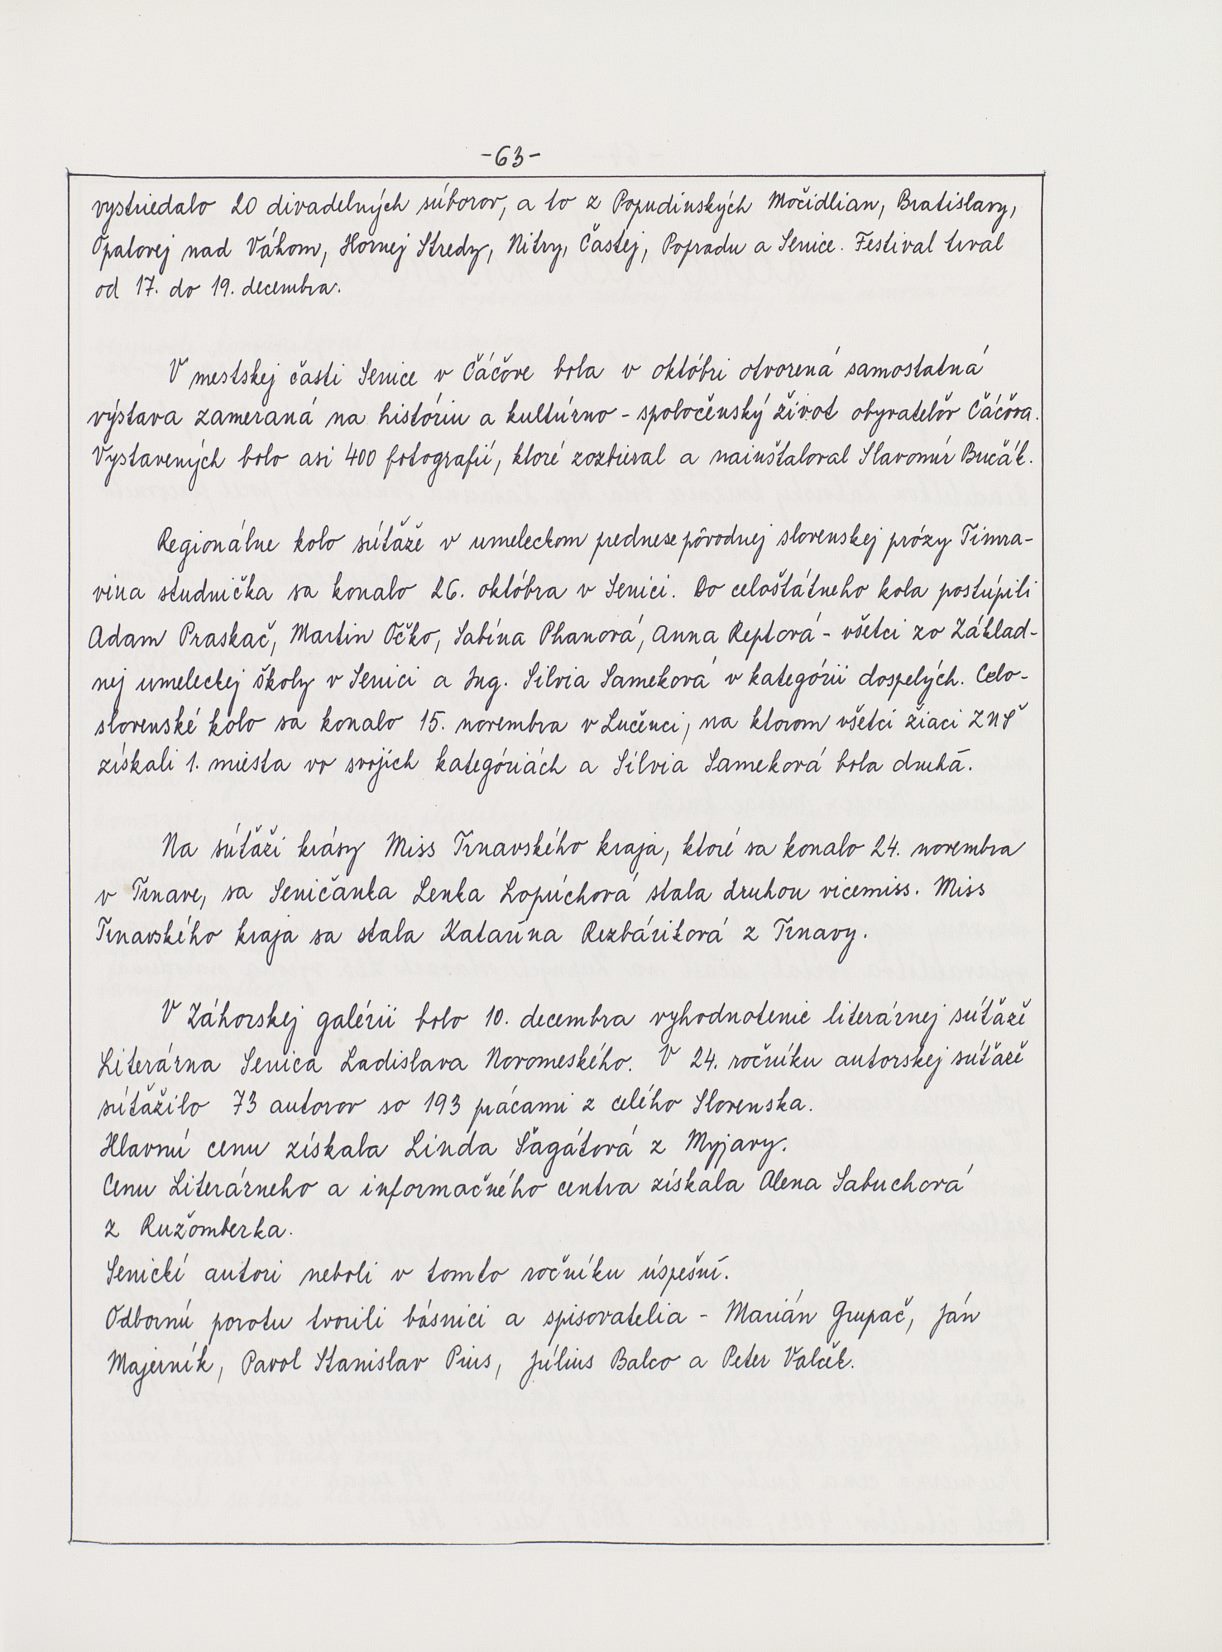 -63-
vystriedalo 20 divadelných súborov, a to z Popudinských Močidlian, Bratislavy,
Opatovej nad Váhom, Hornej Stredy, Nitry, Častej, Popradu a Senice. Festival trval
od 17. do 19. decembra.
V mestskej časti Senice v Čáčove bola v októbri otvorená samostatná
výstava zameraná na históriu a kultúrno - spoločenský život obyvateľov Čáčova.
Vystavených bolo asi 400 fotografií, ktoré zozbieral a nainštaloval Slavomír Bučák.
Regionálne kolo súťaže v umeleckom prednese pôvodnej slovenskej prózy Timra-
vina studnička sa konalo 26. októbra v Senici. Do celoštátneho kola postúpili
Adam Praskač, Martin Očko, Sabína Phanová, Anna Reptová - všetci zo Základ-
nej umeleckej školy v Senici a Ing. Silvia Sameková v kategórii dospelých. Celo-
slovenské kolo sa konalo 15. novembra v Lučenci, na ktorom všetci žiaci ZUŠ
získali 1. miesta vo svojich kategóriách a Silvia Sameková bola druhá.
Na súťaži krásy Miss Trnavského kraja, ktoré sa konalo 24. novembra
v Trnave, sa Seničanka Lenka Lopúchová stala druhou vicemiss. Miss
Trnavského kraja sa stala Katarína Rezbáriková z Trnavy.
V Záhorskej galérii bolo 10. decembra vyhodnotenie literárnej súťaže
Literárna Senica Ladislava Novomeského. V 24. ročníku autorskej súťaže
súťažilo 73 autorov so 193 prácami z celého Slovenska.
Hlavnú cenu získala Linda Šagátová z Myjavy.
Cenu Literárneho a informačného centra získala Alena Sabuchová
z Ružomberka.
Senickí autori neboli v tomto ročníku úspešní.
Odbornú porotu tvorili básnici a spisovatelia - Marián Grupač, Ján
Majerník, Pavol Stanislav Pius, Július Balco a Peter Valček.